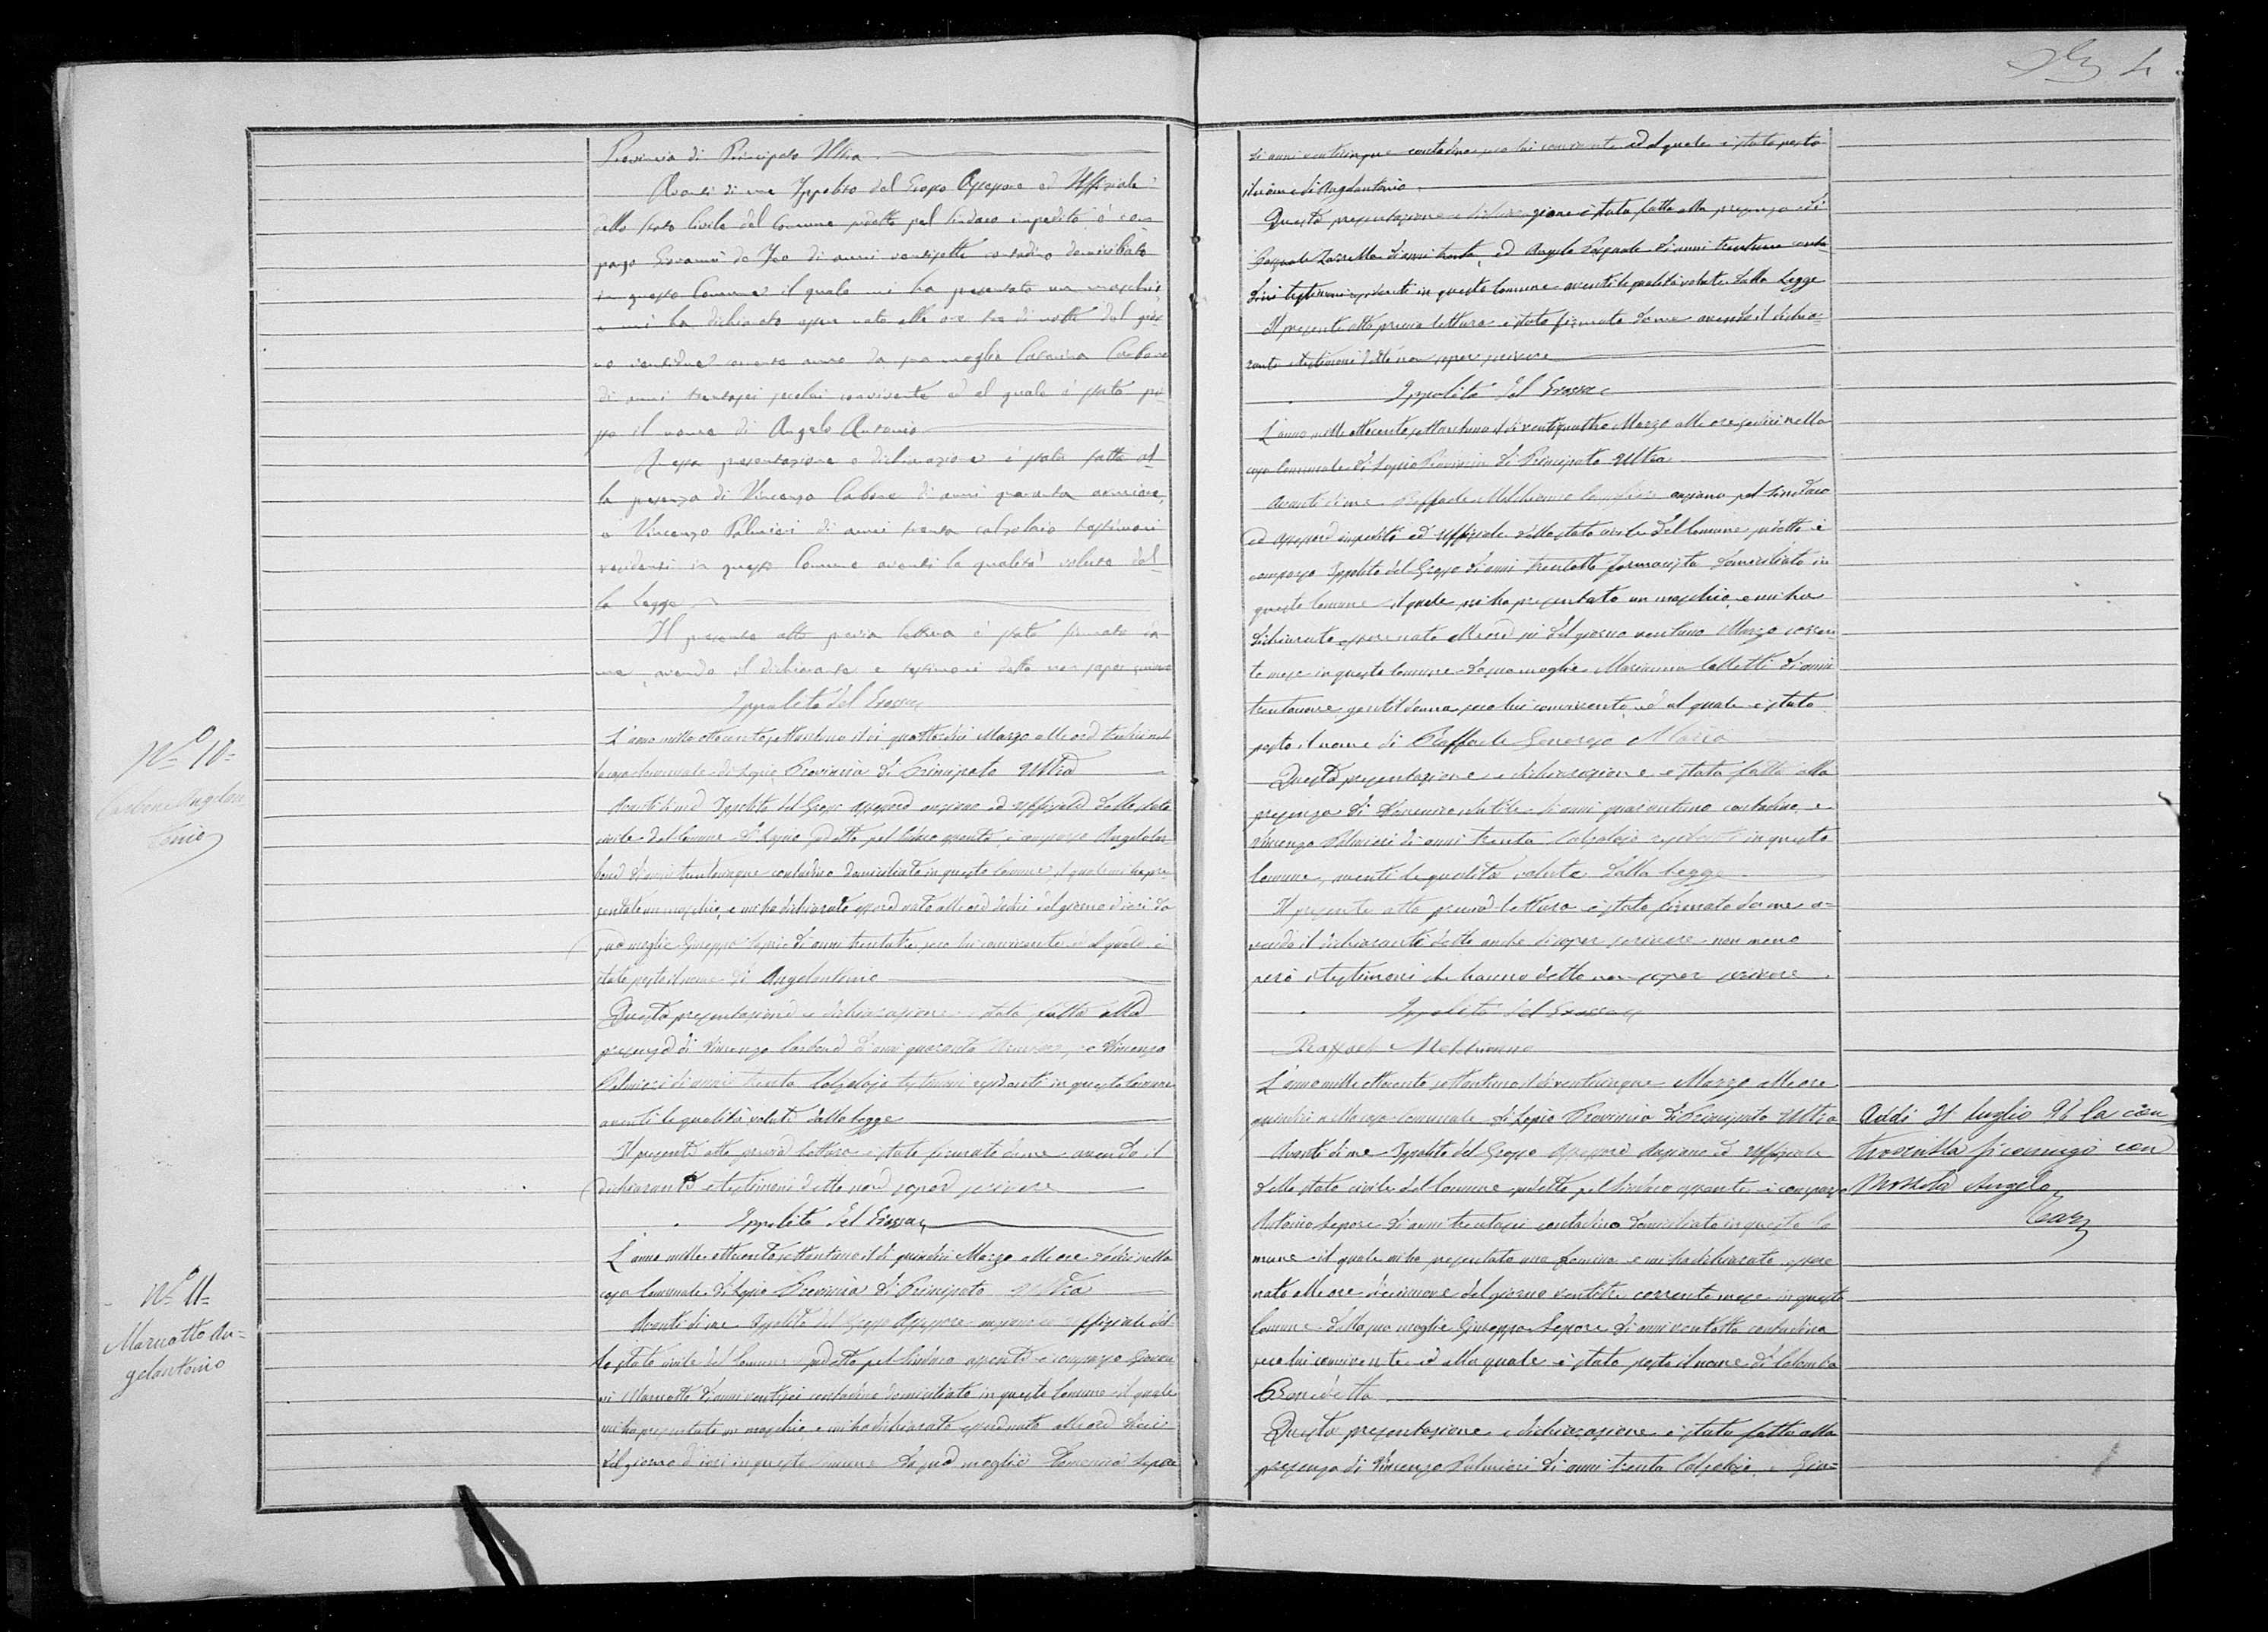 4
Provincia di Principato Ultra
Avanti di me Ippolito del Grosso Assessore ed Uffiziale
dello stato Civile del Comune sudetto pel Sindaco impedito è com
parso Giovanni de Feo di anni ventisette contadino domiciliato
in questo Comune il quale mi ha presentato un maschio
e mi ha dichiarato esser nato alle ore tre di notte del gior
no ventidue corrente anno da sua moglie Catarina Carbone
di anni trentasei secolui convivente ed al quale è stato po
sto il nome di Angelo Antonio
Questa presentazione e dichiarazione è stata fatta al
la presenza di Vincenzo Carbone di anni quaranta
e Vincenzo Palmieri di anni trenta calzolaio testimoni
residenti in questo Comune aventi le qualità volute dal
la Legge
Il presente atto previa lettura è stato firmato da
me, avendo il dichiarante e testimoni detto non saper scrivere
Ippolito del Grosso
No 10=
Carbone Angelan
tonio
L'anno mille ottocento settantuno il dì quattordici Marzo alle ore tredici nel
la casa Comunale di Lapio Provincia di Principato Ultra
Avanti di me Ippolito del Grosso Assessore anziano ed Uffiziale dello stato
civile del Comune di Lapio sudetto pel Sindaco assente, è comparso Angelo Car
bone di anni trentacinque contadino domiciliato in questo Comune il quale mi ha pre
sentato un maschio, e mi ha dichiarato essere nato alle ore dodici del giorno di ieri da
sua moglie Giuseppa Lepore di anni trentatre seco lui convivente ed al quale è
stato posto il nome di Angelantonio
Questa presentazione e dichiarazione è stata fatta alla
presenza di Vincenzo Carbone di anni quaranta e Vincenzo
Palmieri di anni trenta Calzolajo testimoni residenti in questo Comune
aventi le qualità volute dalla legge
Il presente atto previa lettura è stato firmato da me avendo il
dichiarante e testimoni detto non saper scrivere
Ippolito del Grosso
No 11=
Maruotto An=
gelantonio
L'anno mille ottocento settantuno il dì quindici Marzo alle ore dodici nella
casa Comunale di Lapio Provincia di Principato Ultra
Avanti di me Ippolito del Grosso Assessore anziano ed Uffiziale del
lo stato civile del Comune sudetto pel Sindaco assente è comparso Giovan
ni Maruotto di anni ventisei contadino domiciliato in questo Comune il quale
mi ha presentato un maschio e mi ha dichiarato essere nato alle ore dieci
del giorno di ieri in questo Comune da sua moglie Domenica Lepore
di anni venticinque contadina seco lui convivente ed al quale è stato posto
il nome di Angelantonio
Questa presentazione e dichiarazione è stata fatta alla presenza di
Pasquale Zarrella di anni trenta, ed Angelo Pasquale di anni trentuno conta
dini testimoni residenti in questo Comune aventi le qualità volute dalla Legge
Il presente atto previa lettura è stato firmato da me avendo il dichia=
rante e testimoni detto non saper scrivere
Ippolito del Grosso
L'anno mille ottocento settantuno il dì ventiquattro Marzo alle ore sedici nella
casa Comunale di Lapio Provincia di Principato Ultra
Avanti di me Raffaele Melchionne Consigliere anziano pel Sindaco
ed Assessore impediti ed Uffiziale dello stato civile del Comune sudetto è
comparso Ippolito del Grosso di anni trentotto farmacista domiciliato in
questo Comune il quale mi ha presentato un maschio, e mi ha
dichiarato essere nato alle ore sei del giorno ventuno Marzo corren
te mese in questo Comune da sua moglie Marianna Colletti di anni
trentanove gentildonna seco lui convivente ed al quale è stato
posto il nome di Raffaele Generoso Maria
Questa presentazione e dichiarazione è stata fatta alla
presenza di di anni quarantuno contadino, e
Vincenzo Palmieri di anni trenta Calzolajo residenti in questo
Comune, aventi le qualità volute dalla legge
Il presente atto previa lettura è stato firmato da me a=
vendo il dichiarante detto anche di saper scrivere non meno
però i testimoni che hanno detto non saper scrivere
Ippolito del Grosso
Raffael Melchionne
L'anno mille ottocento settantuno il dì venticinque Marzo alle ore
quindici nella casa Comunale di Lapio Provincia di Principato Ultra
Avanti di me Ippolito del Grosso Assessore Anziano ed Uffiziale
dello stato civile del Comune sudetto pel Sindaco assente è comparso
Antonio Lepore di anni trentasei contadino domiciliato in questo Co
mune il quale mi ha presentato una femina e mi ha dichiarato essere
nata alle ore diecinnove del giorno ventitre corrente mese in questo
Comune dalla sua moglie Giuseppa Lepore di anni ventotto contadina
seco lui convivente ed alla quale è stato posto il nome di Colomba
Benedetta
Questa presentazione e dichiarazione è stata fatta alla
presenza di Vincenzo Palmieri di anni trenta Calzolajo, e Gio=
Addì 31 luglio 91 la con
troscritta si coniugò con
Angelo